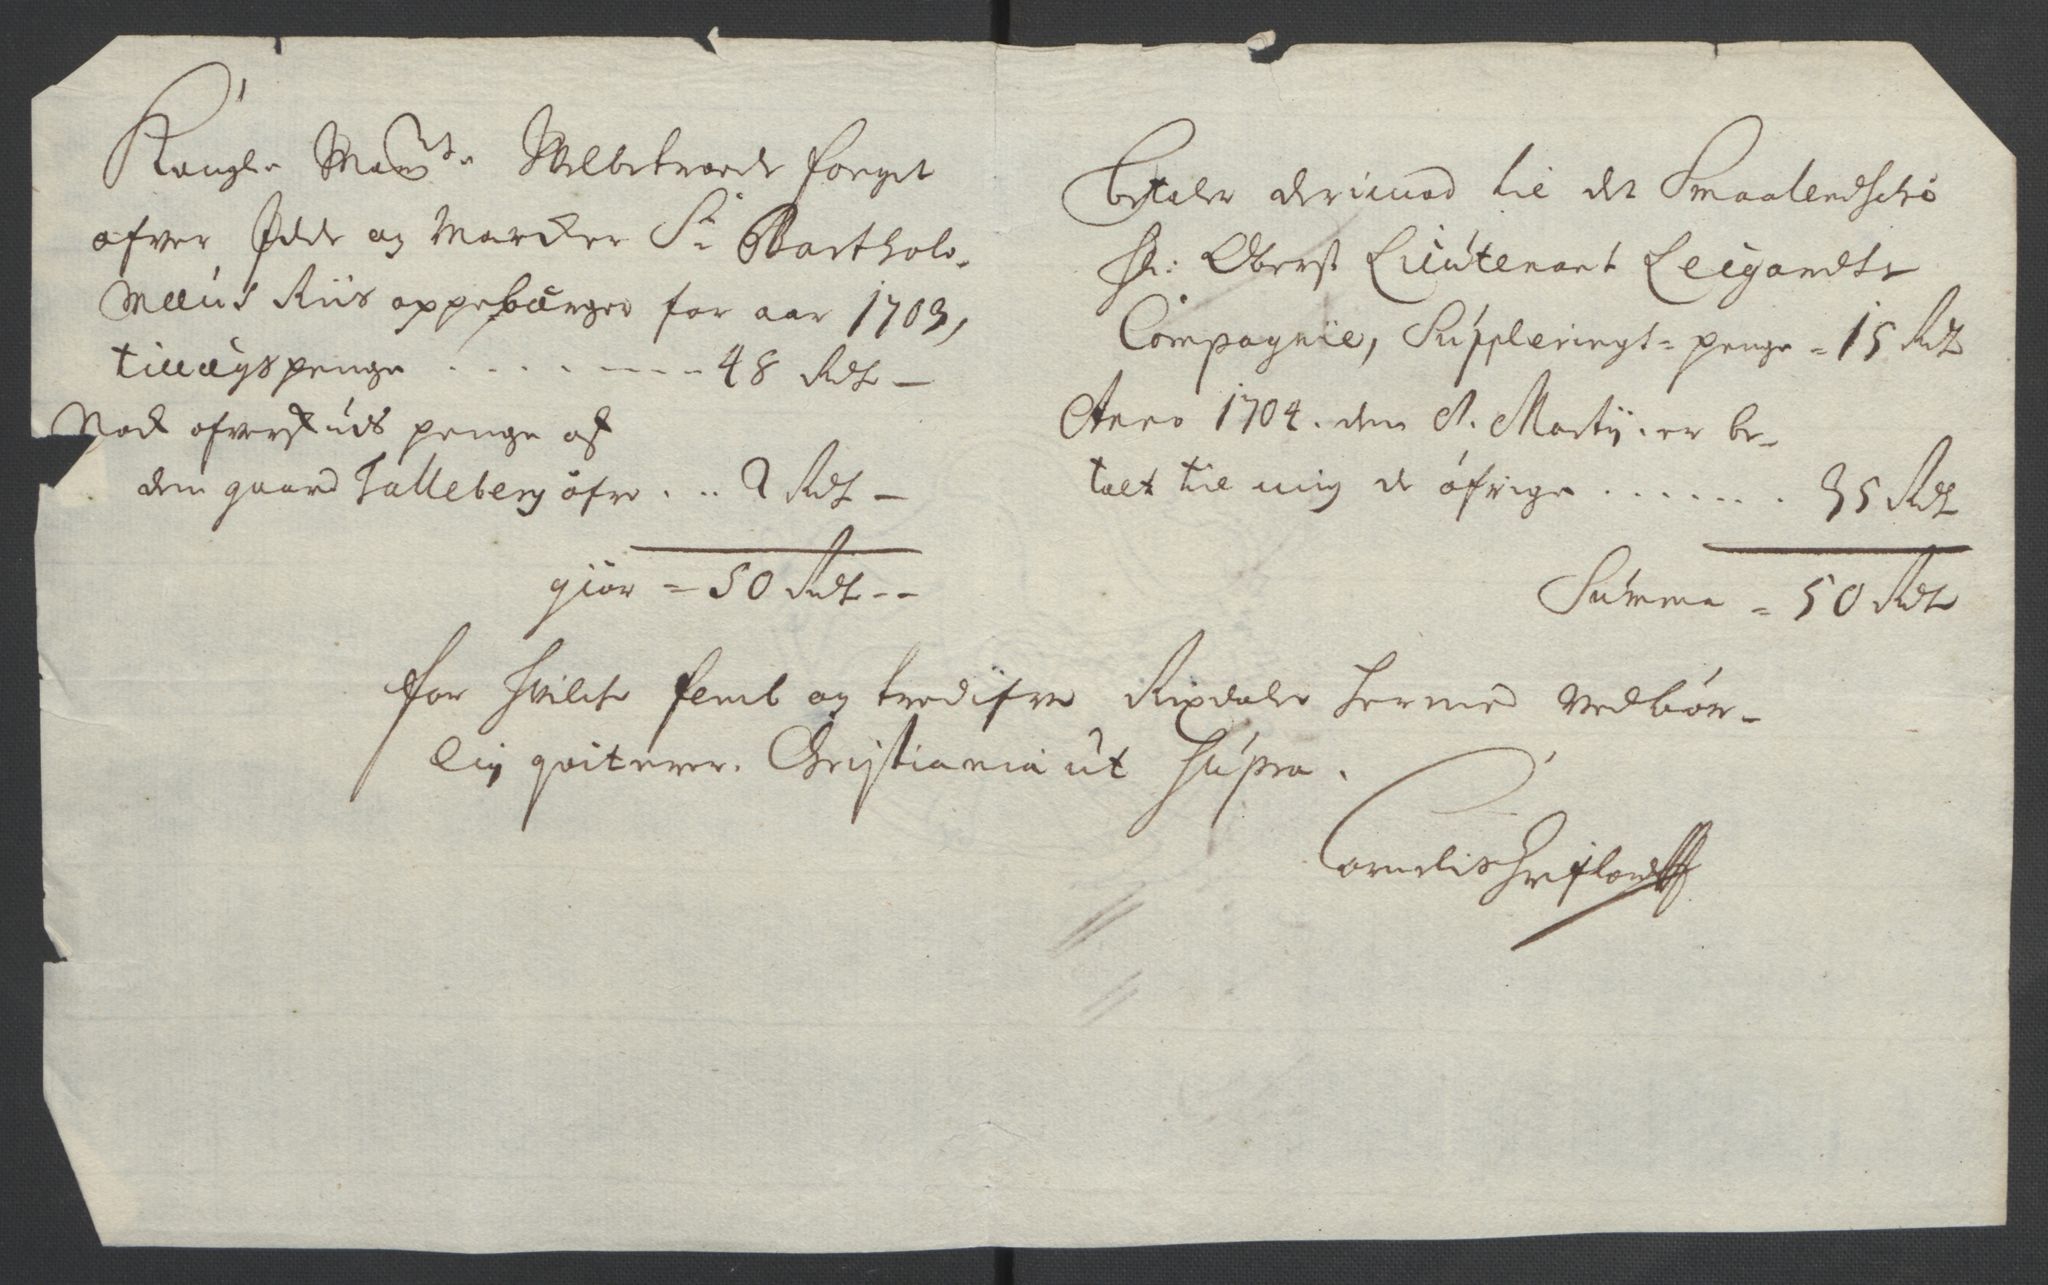 Kongl. Mayts. Velbetroede foeget
ofver Idde og Marcker Sr Bartholo-
mæus Riis oppebørger for aar 1703,
tillægspenge . . . . . . . . 48 Rdr —
Noch ofverskuds penge af
dend gaard Talleberg øfre . . . 2 Rdr —
giør = 50 Rdr - -
Betaler derimod til det Smaalendsche
Hr: Oberst Lieutenant
Compagnie, Supplerings= penge = 15 Rdr
Anno 1704. den Martij. er be-
talt til mig de øfrige . . . . . . . 35 Rdr
Summa = 50 Rdr
for hvilche femb og tredifve Rixdaler hermed vedbør-
lig qviterer. Christiania ut supra.
Cornelis